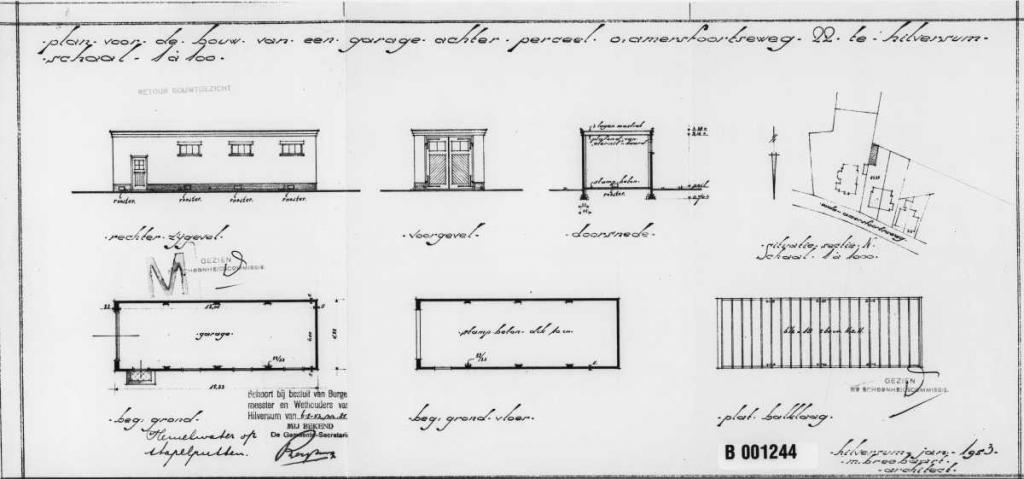 plan voor de bouw van een garage achter perceel o.amersfoortseweg 22 te hilversum.
schaal 1 à 100.
RETOUR BOUWTOEZICHT
rooster. rooster. rooster. rooster.
rechter zijgevel.
voorgevel.
stampbeton.
rooster.
peil
doorsnede.
oude amersfoortseweg
situatie, sectie N.
schaal 1 à 1000.
GEZIEN
SCHOONHEIDSCOMMISSIE
M
garage.
beg. grond.
Hemelwater op
stapelputten.
Behoort bij besluit van Burge
meester en Wethouders van
Hilversum van
MIJ BEKEND
De Gemeente-Secretaris
stamp beton dik 10 cm.
beg. grond vloer.
GEZIEN
SCHOONHEIDSCOMMISSIE
plat balklaag.
B 001244
hilversum, jan. 1953.
m. breebaart.
architect.